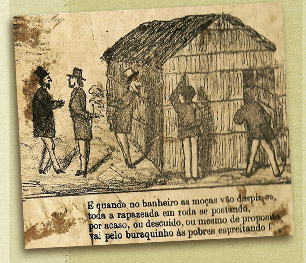 E quando no banheiro as moças vão despir-se,
toda a rapazeada em roda se postando,
por acaso, ou descuido, ou mesmo de proposito
vai pelo buraquinho ás pobres espreitando !